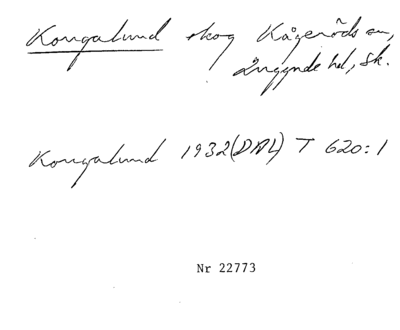 Kongalund skog Kågeröds sn,
Luggude hd, Sk.
Kongalund 1932 (DAL) T 620:1
Nr 22773